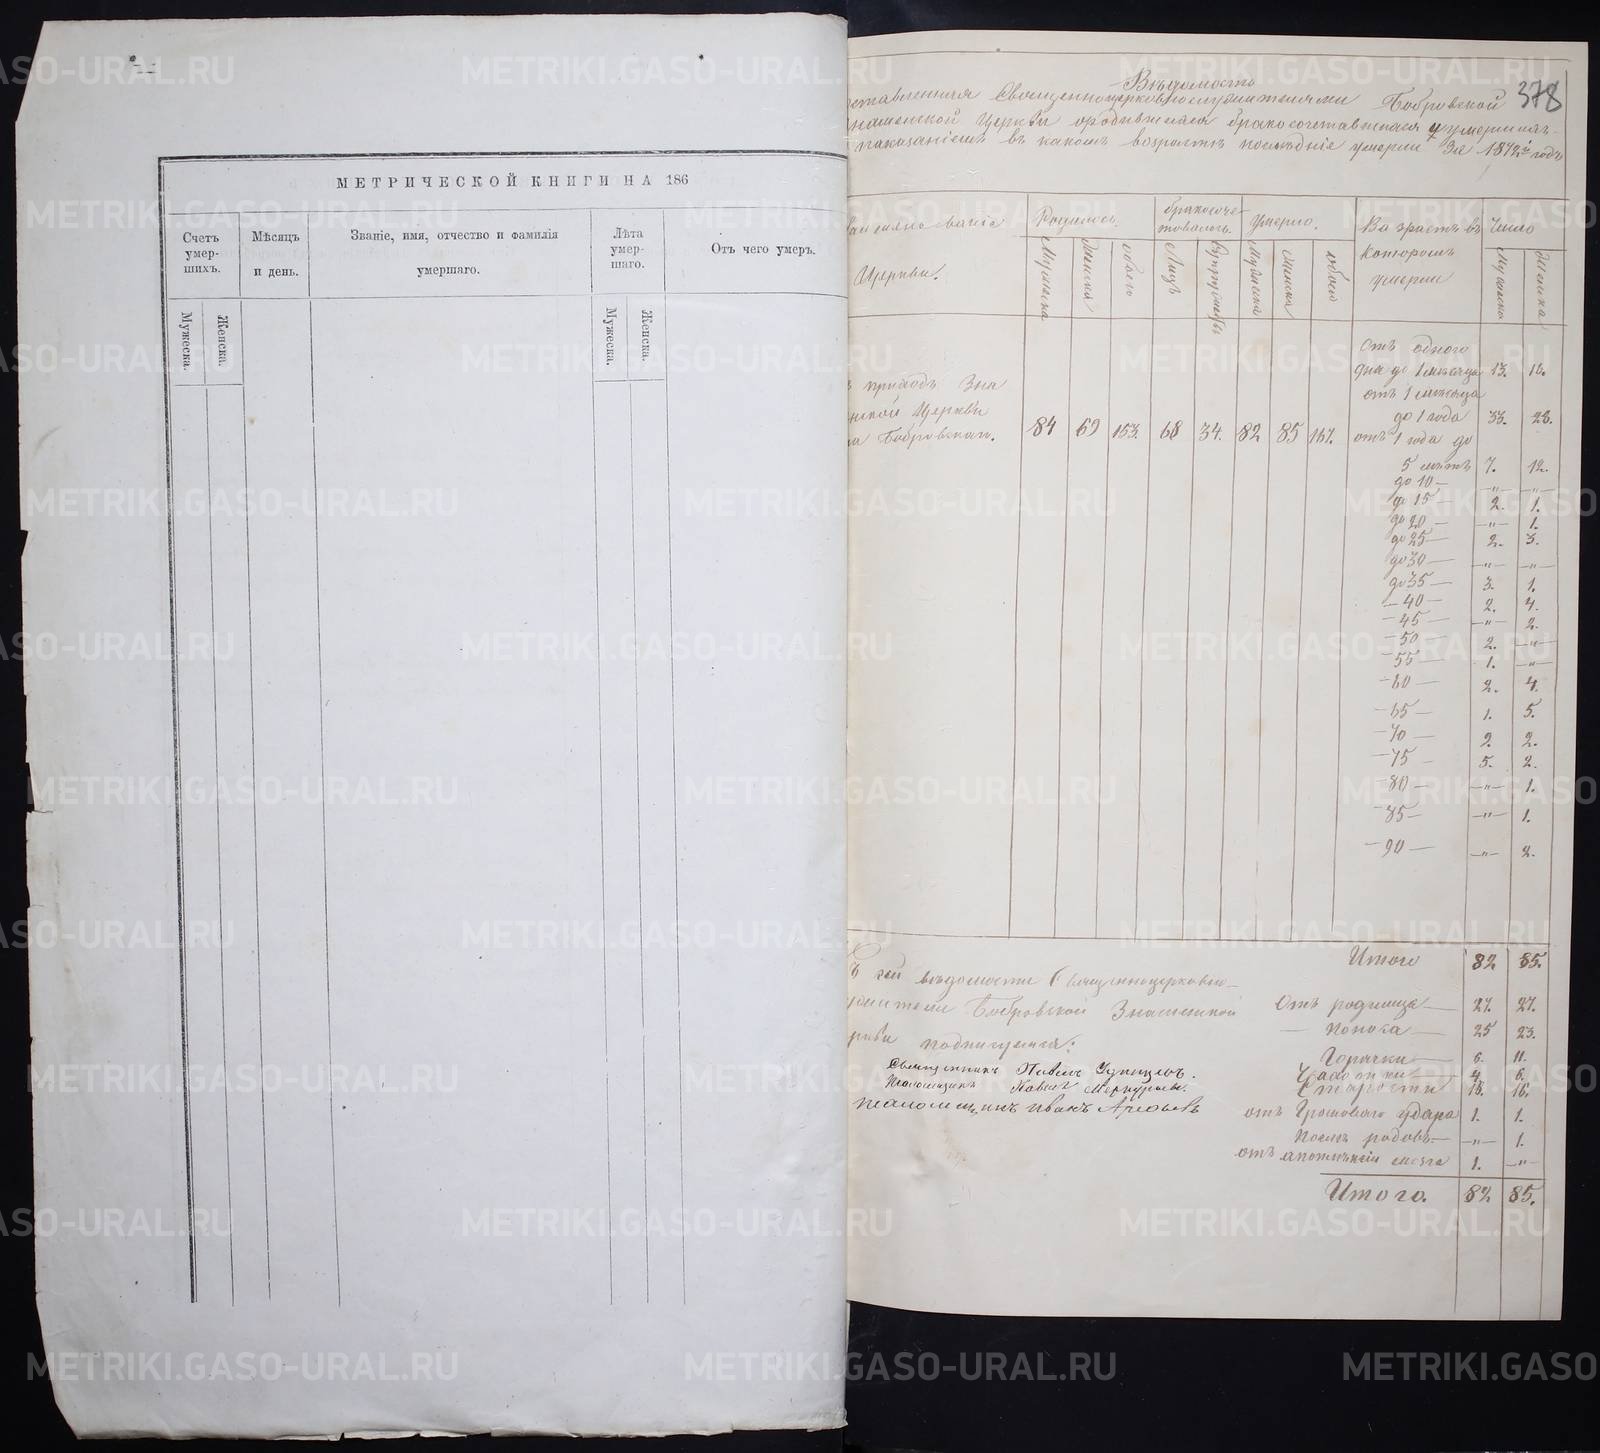 МЕТРИЧЕСКОЙ КНИГИ НА 186
Счетъ умер- шихъ.
Мѣсяцъ и день.
Званіе, имя, отчество и фамилія умершаго.
Лѣта умер- шаго.
Отъ чего умеръ.
Мужеска. Женска.
Мужеска. Женска.
378
Вѣдомость
ставленная Священноцерковнослужителями Бобровской
наменской Церкви о родившихся бракосочетавшихся и умершихъ
показаніемъ въ какомъ возрастѣ послѣдніе умерли За 1872й годъ
Церкви.
Родилось.
бракосоче- товалось.
Умерло.
Возрастъ въ которомъ умерли
Число
Мужеска Женска обоего Лицъ Супружебъ Мужеска Женска обоего Мужеска Женска
ъ приходѣ Зна
нской Церкви
ла Бобровскаго.
84 69 153. 68 34. 82 85 167.
Отъ одного
дня до 1 мѣсяца 13. 12.
отъ 1 мѣсяца
до 1 года 33. 23.
отъ 1 года до
5 лѣтъ 7. 12.
до 10 — —"— —"—
до 15 — 2. 1.
до 20 — —"— 1.
до 25 — 2. 3.
до 30 — —"— —"—
до 35 — 3. 1.
— 40 — 2. 4.
— 45 — —"— 2.
— 50 — 2. —"—
— 55 — 1. —"—
— 60 — 2. 4.
— 65 — 1. 5.
— 70 — 2. 2.
— 75 — 5. 2.
— 80 — —"— 1.
— 85 — —"— 1.
— 90 — —"— 2.
Итого 82 85.
ъ сей вѣдомости Священноцерковно-
ужители Бобровской Знаменской
ркви подписуемся:
Священникъ Павелъ
Псаломщикъ Павелъ Меркурьевъ.
Псаломщикъ Иванъ
Отъ родимца — 27. 27.
— поноса — 25 23.
Горячки — 6. 11.
Чахотки — 4. 6.
Старости 18. 16.
отъ Громоваго удара 1. 1.
Послѣ родовъ — —"— 1.
отъ апоплексіи мозга 1. —"—
Итого. 82 85.
METRIKI.GASO-URAL.RU